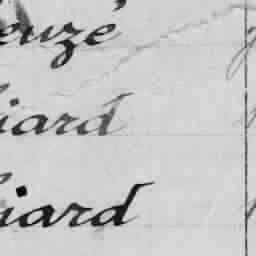 euzé
iard
iard